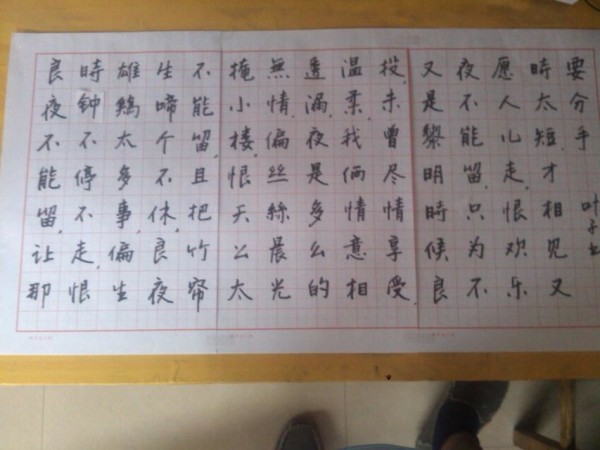 良夜不能留,让那
時钟不停不走,恨
雄鸡太多事,偏生
生啼个不休,良夜
不能留,且把竹帘
掩小楼,恨天公太
無情,偏丝絲晨光
透漏,夜是多么的
温柔,我俩情意相
投,未曾尽情享受
又是黎明時候良
夜不能留,只为不
愿人儿走,恨欢乐
時太短,才相見又
要分手
叶子书